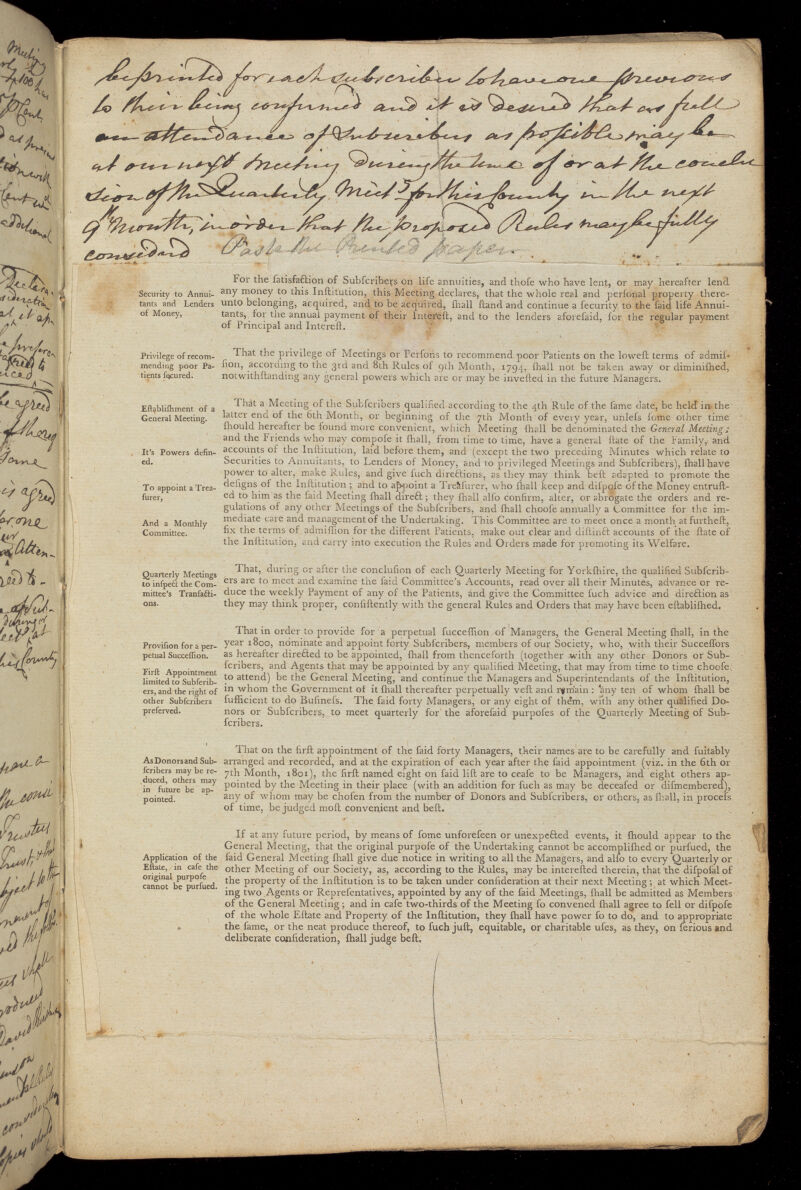 be printed for each subscriber to have one previous
to their being confirmed and it is desired that as full
an attendance of Subscribers as possible may be
at our next Meeting During the time of or at the conclu
sion of the Quarterly Meet.g for this County in the next
9th Month, in order that the proposed Rules may be fully
considerd Paste the Printed paper.
Security to Annui-
tants and Lenders
of Money,
For the ſatisfaction of Subſcribers on life annuities, and thoſe who have lent, or may hereafter lend
any money to this Inſtitution, this Meeting declares, that the whole real and perſonal property there-
unto belonging, acquired, and to be acquired, ſhall ſtand and continue a ſecurity to the ſaid life Annui-
tants, for the annual payment of their Intereſt, and to the lenders aforeſaid, for the regular payment
of Principal and Intereſt.
Privilege of recom-
mending poor Pa-
tients ſecured.
That the privilege of Meetings or Perſons to recommend poor Patients on the loweſt terms of admiſ-
ſion, according to the 3rd and 8th Rules of 9th Month, 1794, ſhall not be taken away or diminiſhed,
notwithſtanding any general powers which are or may be inveſted in the future Managers.
Eſtabliſhment of a
General Meeting.
It's Powers defin-
ed.
To appoint a Trea-
ſurer,
And a Monthly
Committee.
That a Meeting of the Subſcribers qualified according to the 4th Rule of the ſame date, be held in the
latter end of the 6th Month, or beginning of the 7th Month of every year, unleſs ſome other time
ſhould hereafter be found more convenient, which Meeting ſhall be denominated the General Meeting;
and the Friends who may compoſe it ſhall, from time to time, have a general ſtate of the Family, and
accounts of the Inſtitution, laid before them, and (except the two preceding Minutes which relate to
Securities to Annuitants, to Lenders of Money, and to privileged Meetings and Subſcribers), ſhall have
power to alter, make Rules, and give ſuch directions, as they may think beſt adapted to promote the
deſigns of the Inſtitution; and to appoint a Treaſurer, who ſhall keep and diſpoſe of the Money entruſt-
ed to him as the ſaid Meeting ſhall direct; they ſhall alſo confirm, alter, or abrogate the orders and re-
gulations of any other Meetings of the Subſcribers, and ſhall chooſe annually a Committee for the im-
mediate care and management of the Undertaking. This Committee are to meet once a month at furtheſt,
fix the terms of admiſſion for the different Patients, make out clear and diſtinct accounts of the ſtate of
the Inſtitution, and carry into execution the Rules and Orders made for promoting its Welfare.
Quarterly Meetings
to inſpect the Com-
mittee's Tranſacti-
ons.
That, during or after the concluſion of each Quarterly Meeting for Yorkſhire, the qualified Subſcrib-
ers are to meet and examine the ſaid Committee's Accounts, read over all their Minutes, advance or re-
duce the weekly Payment of any of the Patients, and give the Committee ſuch advice and direction as
they may think proper, conſiſtently with the general Rules and Orders that may have been eſtabliſhed.
Proviſion for a per-
petual Succeſſion.
Firſt Appointment
limited to Subſcrib-
ers, and the right of
other Subſcribers
preſerved.
That in order to provide for a perpetual ſucceſſion of Managers, the General Meeting ſhall, in the
year 1800, nominate and appoint forty Subſcribers, members of our Society, who, with their Succeſſors
as hereafter directed to be appointed, ſhall from thenceforth (together with any other Donors or Sub-
ſcribers, and Agents that may be appointed by any qualified Meeting, that may from time to time chooſe
to attend) be the General Meeting, and continue the Managers and Superintendants of the Inſtitution,
in whom the Government of it ſhall thereafter perpetually veſt and remain: any ten of whom ſhall be
ſufficient to do Buſineſs. The ſaid forty Managers, or any eight of them, with any other qualified Do-
nors or Subſcribers, to meet quarterly for the aforeſaid purpoſes of the Quarterly Meeting of Sub-
ſcribers.
As Donors and Sub-
ſcribers may be re-
duced, others may
in future be ap-
pointed.
That on the firſt appointment of the ſaid forty Managers, their names are to be carefully and ſuitably
arranged and recorded, and at the expiration of each year after the ſaid appointment (viz. in the 6th or
7th Month, 1801), the firſt named eight on ſaid liſt are to ceaſe to be Managers, and eight others ap-
pointed by the Meeting in their place (with an addition for ſuch as may be deceaſed or diſmembered),
any of whom may be choſen from the number of Donors and Subſcribers, or others, as ſhall, in proceſs
of time, be judged moſt convenient and beſt.
Application of the
Eſtate, in caſe the
original purpoſe
cannot be purſued.
If at any future period, by means of ſome unforeſeen or unexpected events, it ſhould appear to the
General Meeting, that the original purpoſe of the Undertaking cannot be accompliſhed or purſued, the
ſaid General Meeting ſhall give due notice in writing to all the Managers, and alſo to every Quarterly or
other Meeting of our Society, as, according to the Rules, may be intereſted therein, that the diſpoſal of
the property of the Inſtitution is to be taken under conſideration at their next Meeting; at which Meet-
ing two Agents or Repreſentatives, appointed by any of the ſaid Meetings, ſhall be admitted as Members
of the General Meeting; and in caſe two-thirds of the Meeting ſo convened ſhall agree to ſell or diſpoſe
of the whole Eſtate and Property of the Inſtitution, they ſhall have power ſo to do, and to appropriate
the ſame, or the neat produce thereof, to ſuch juſt, equitable, or charitable uſes, as they, on ſerious and
deliberate conſideration, ſhall judge beſt.